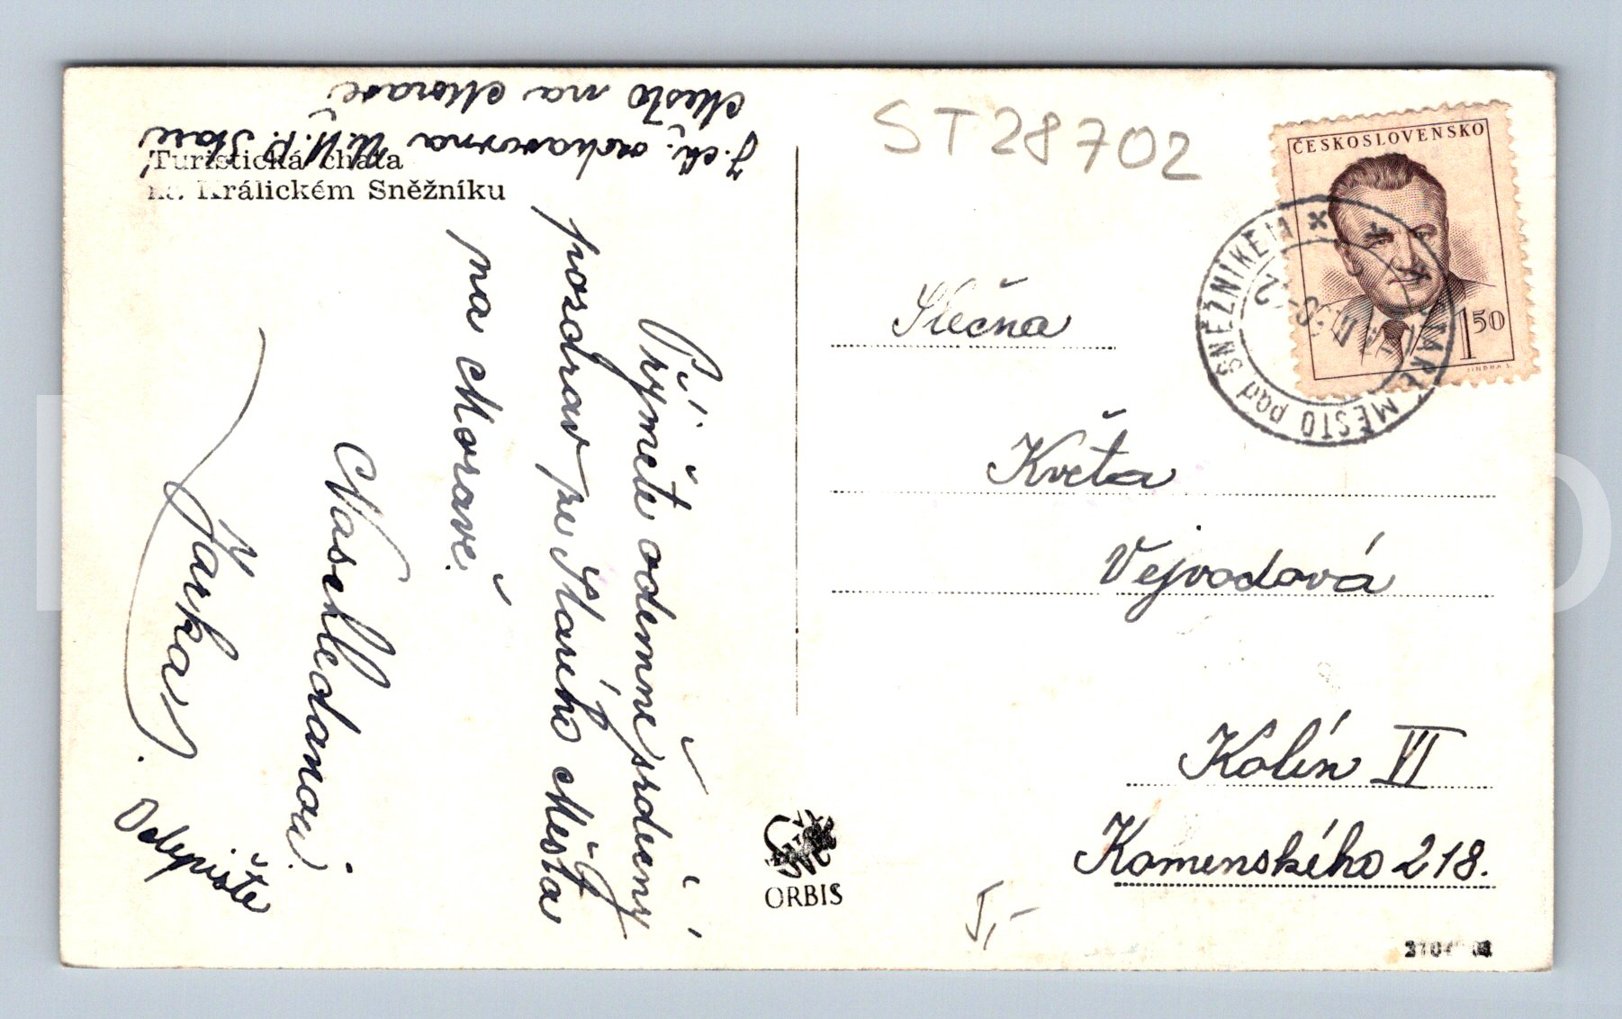 Turistická chata
na Králickém Sněžníku
Přijměte odemne srdečný
pozdrav ze Starého Města
na Moravě.
Nasehledanou!
Jarka
Odepište
Město na Moravě
ST28702
ČESKOSLOVENSKO
1 50
STARÉ MĚSTO pod SNĚŽNÍKEM
Slečna
Květa
Vejvodová
Kolín VI
Komenského 218.
ORBIS
5,-